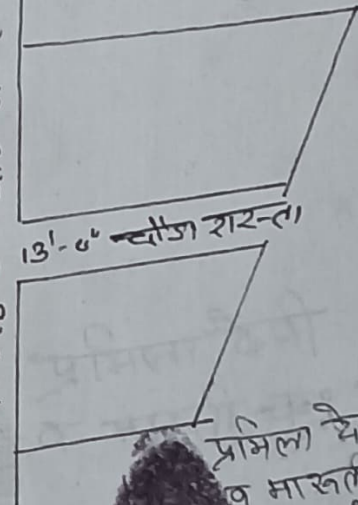 13'-0" चौडा रास्ता
प्रमिला
व मारूती